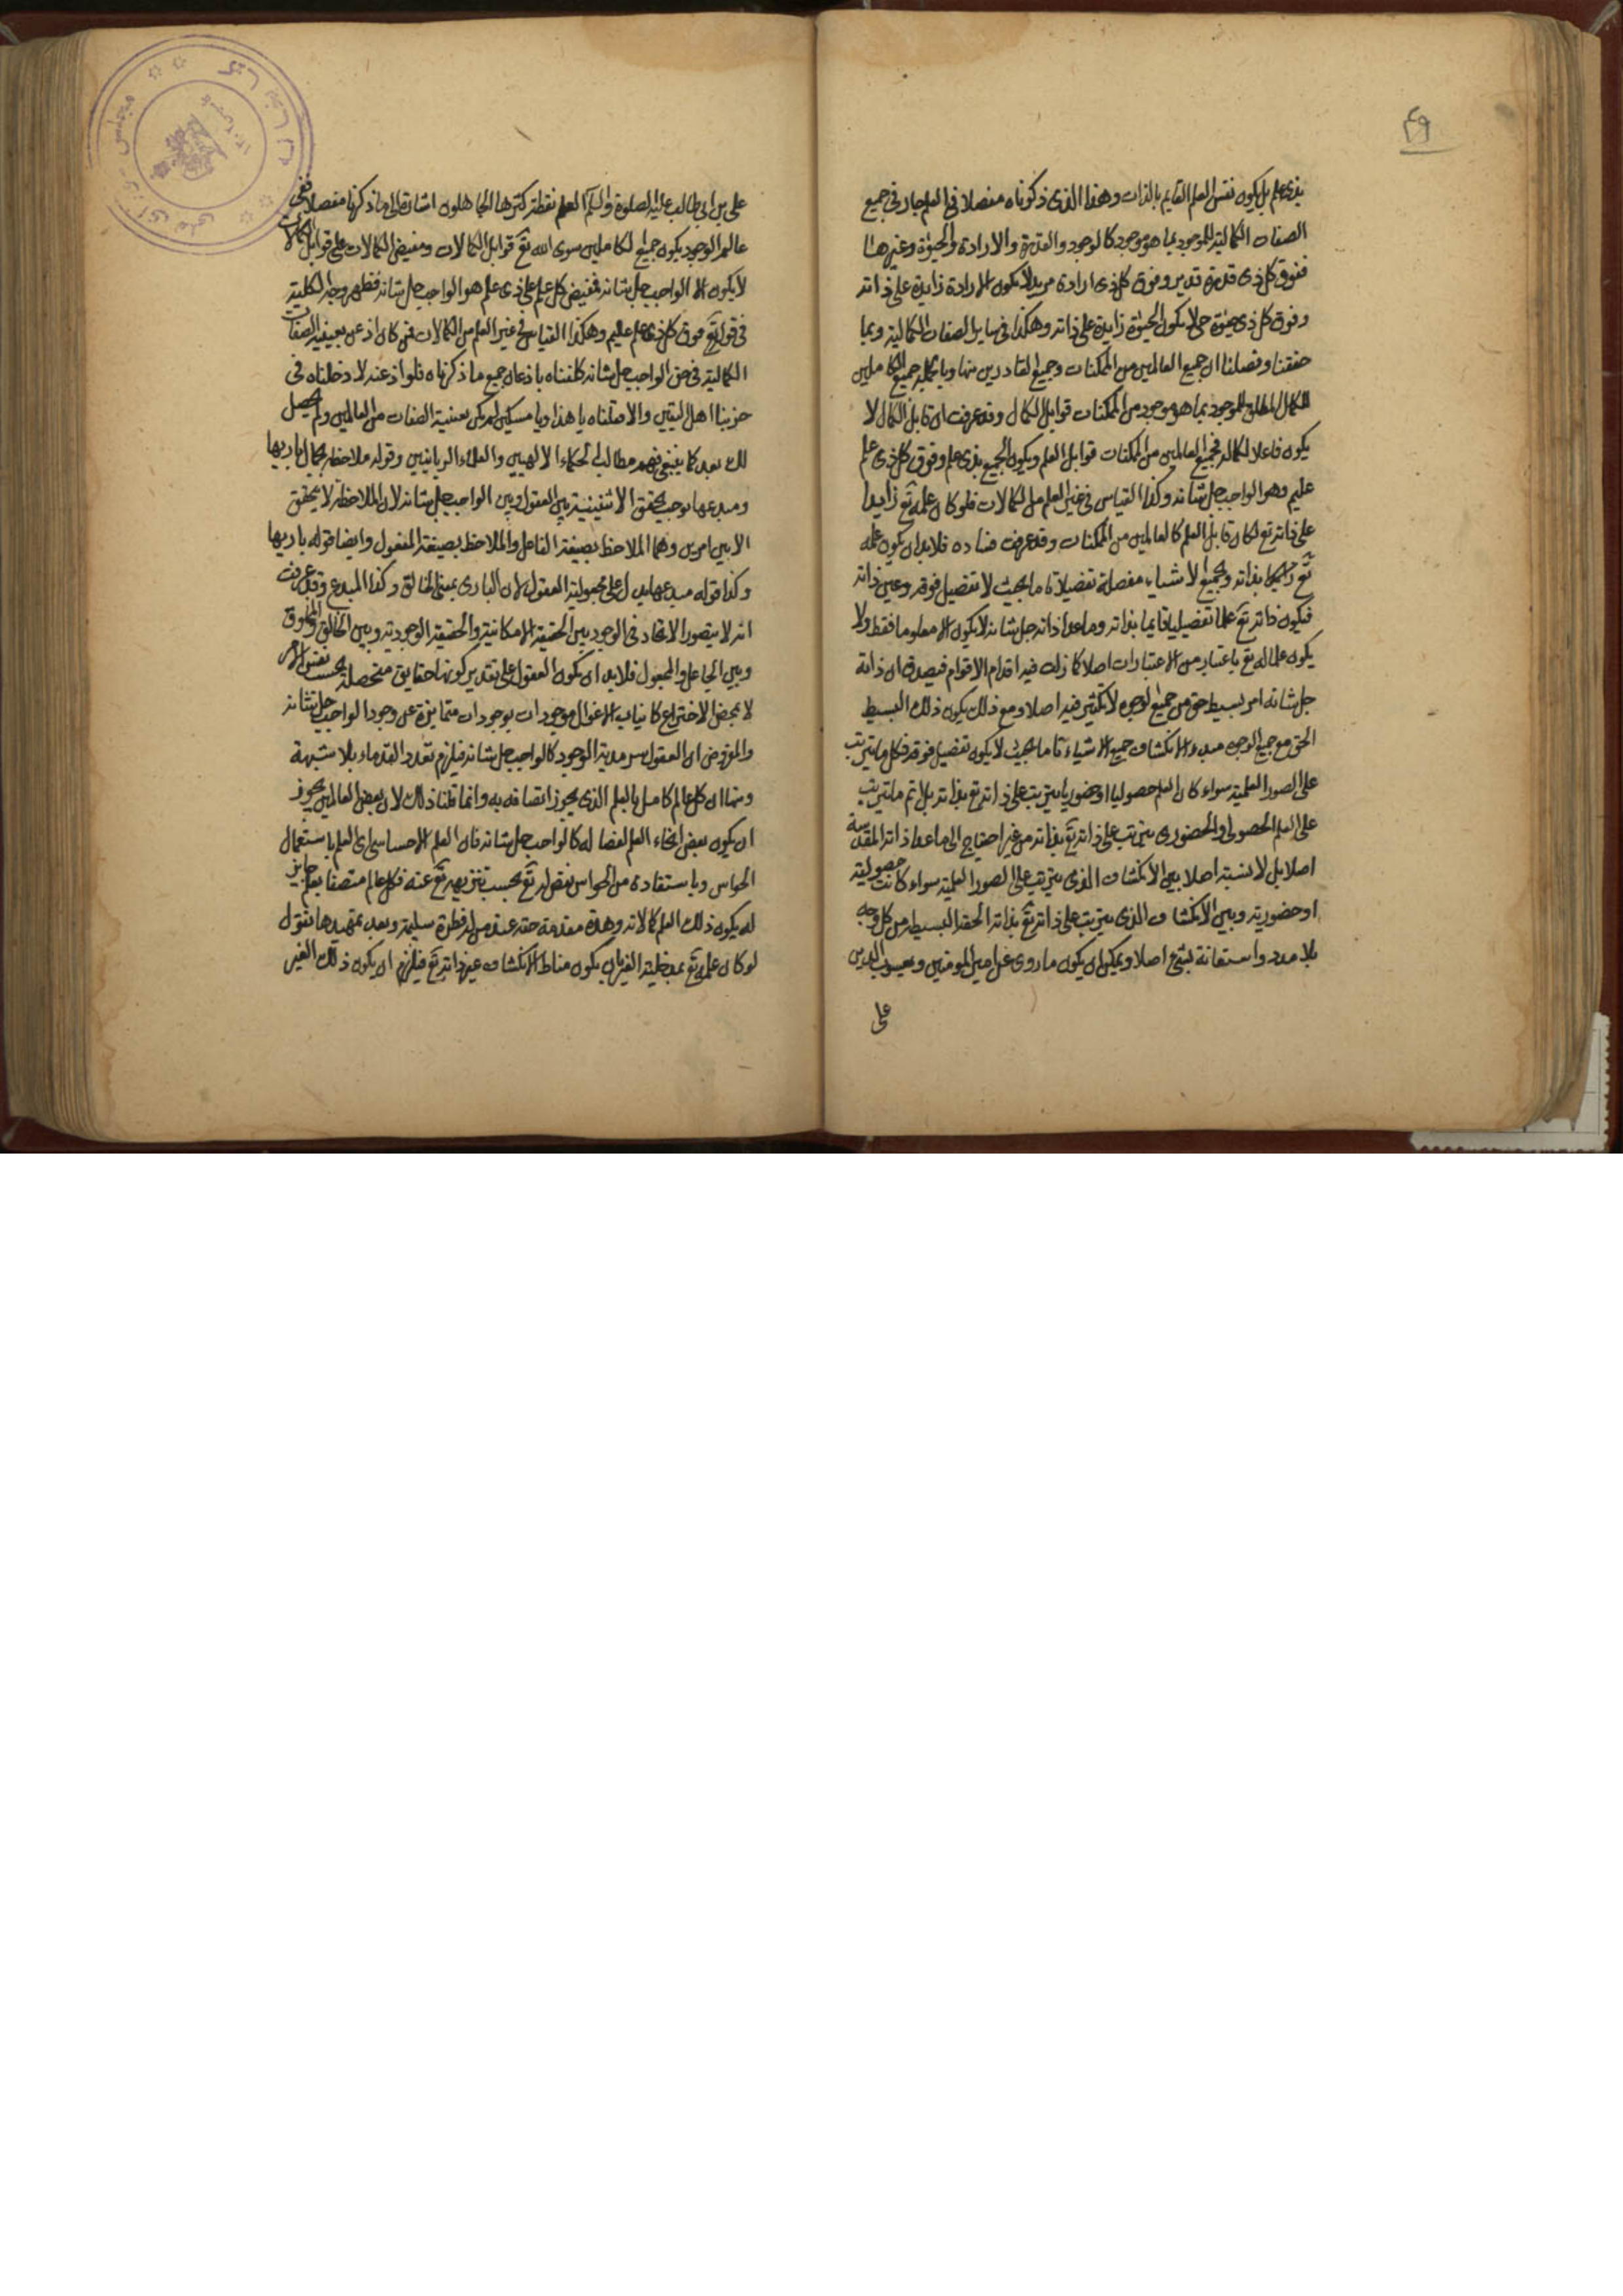 ٤٩
بذى علم بل يكون نفس العلم القايم بالذات وهذا الذى ذكرناه مفصلا فى العلم جار فى جميع
الصفات الكمالية للموجود بما هو موجود كالوجود والقدرة والارادة والحيوة وغيرها
ففوق كل ذى قدرة قدير وفوق كل ذى ارادة مريد لا يكون الارادة زايدة على ذاته
وفوق كل ذى حيوة حى لا يكون الحيوة زايدة على ذاته وهكذا فى ساير الصفات الكمالية وبما
حققنا وفصلنا ان جميع العالمين من الممكنات وجميع القادرين منها وبالجملة جميع الكاملين
للكمال المطلق للموجود بما هو موجود من الممكنات قوابل الكمال وقد عرفت ان قابل الكمال لا
يكون فاعلا لكماله فجميع العالمين من الممكنات قوابل العلم ويكون الجميع بذى علم وفوق كل ذى علم
عليم وهو الواجب جل شانه وكذا القياس فى غير العلم من الكمالات فلو كان علمه تع زايدا
على ذاته تع لكان قابل العلم كالعالمين من الممكنات وقد عرفت فساده فلابد ان يكون علمه
تع بذاته وبجميع الاشياء مفصلة تفصيلا تاما بحيث لا تفصيل فوقه وعين ذاته
فيكون ذاته تع علما تفصيليا قايما بذاته وما عدا ذاته جل شانه لا يكون الا معلوما فقط ولا
يكون علما له تع باعتبار من الاعتبارات اصلا كما زلت فيه اقدام الاقوام فيصدق ان ذاته
جل شانه امر بسيط حق من جميع الوجوه لا تكثر فيه اصلا ومع ذلك يكون ذلك البسيط
الحق مع جميع الوجوه مبدء الانكشاف جميع الاشياء تاما بحيث لا يكون تفصيل فوقه فكل ما يترتب
على الصور العلمية سواء كان العلم حصوليا او حضوريا يترتب على ذاته تع بذاته بل اتم ما يترتب
على العلم الحصولى والحضورى يترتب على ذاته تع بذاته من غير احتياج الى ما عدا ذاته المقدسة
اصلا بل لا نسبة اصلا بين الانكشاف الذى يترتب على الصور العلمية سواء كانت حصولية
او حضورية وبين الانكشاف الذى يترتب على ذاته تع بذاته الحقة البسيطة من كل وجه
بلا مدد واستعانة بشئ اصلا ويمكن ان يكون ما روى عن امير المومنين ويعسوب الدين
على
على بن ابى طالب عليه الصلوة والسلم العلم نقطة كثرها الجاهلون اشارة الى ما ذكرنا مفصلا ففى
عالم الوجود يكون جميع الكاملين سوى الله تع قوابل الكمالات ومفيض الكمالات على قوابل الكمالات
لا يكون الا الواجب جل شانه فمفيض كل علم على ذى علم هو الواجب جل شانه فظهر وجه الكلية
فى قوله تع فوق كل ذى علم عليم وهكذا القياس فى غير العلم من الكمالات فمن كان اذعن بعينية الصفات
الكمالية فى حق الواجب جل شانه كلفناه باذعان جميع ما ذكرناه فلو اذعنه لادخلناه فى
حزبنا اهل اليقين والا قلناه يا هذا ويا مسكين لم يكن بعينية الصفات من العالمين ولم يحصل
لك بعد كما ينبغى فهم مطالب الحكماء الالهيين والعلماء الربانيين وقوله ملاحظة جمال باريها
ومبدعها يوجب تحقق الاثنينية بين العقول وبين الواجب جل شانه لان الملاحظة لا يتحقق
الا بين امرين وهما الملاحظ بصيغة الفاعل والملاحظ بصيغة المفعول وايضا قوله باريها
وكذا قوله مبدعها يدل على مجعولية العقول لان البارى بمعنى الخالق وكذا المبدع وقد عرفت
انه لا يتصور الاتحاد فى الوجود بين الحقيقة الامكانية والحقيقة الوجودية وبين الخالق والمخلوق
وبين الجاعل والمجعول فلابد ان يكون العقول على تقدير كونها حقايق متحصلة بحسب نفس الامر
لا بمحض الاختراع كانياب الاغوال موجودات بوجودات متمايزة عن وجود الواجب جل شانه
والمفروض ان العقول سرمدية الوجود كالواجب جل شانه فيلزم تعدد القدماء بلا شبهة
ومنها ان كل عالم كامل بالعلم الذى يجوز اتصافه به وانما قلنا ذلك لان بعض العالمين يجوز
ان يكون بعض انحاء العلم نقصا له كالواجب جل شانه فان العلم الاحساسى اى العلم باستعمال
الحواس وباستفادة من الحواس نقص له تع بحسب تنزيهه تع عنه فكل عالم متصفا بعلم جايز
له يكون ذلك العلم كمالا له وهذه مقدمة حقة عند من له فطرة سليمة وبعد تمهيدها نقول
لو كان علمه تع بمدخلية الغير بان يكون مناط الانكشاف غير ذاته تع فيلزم ان يكون ذلك الغير